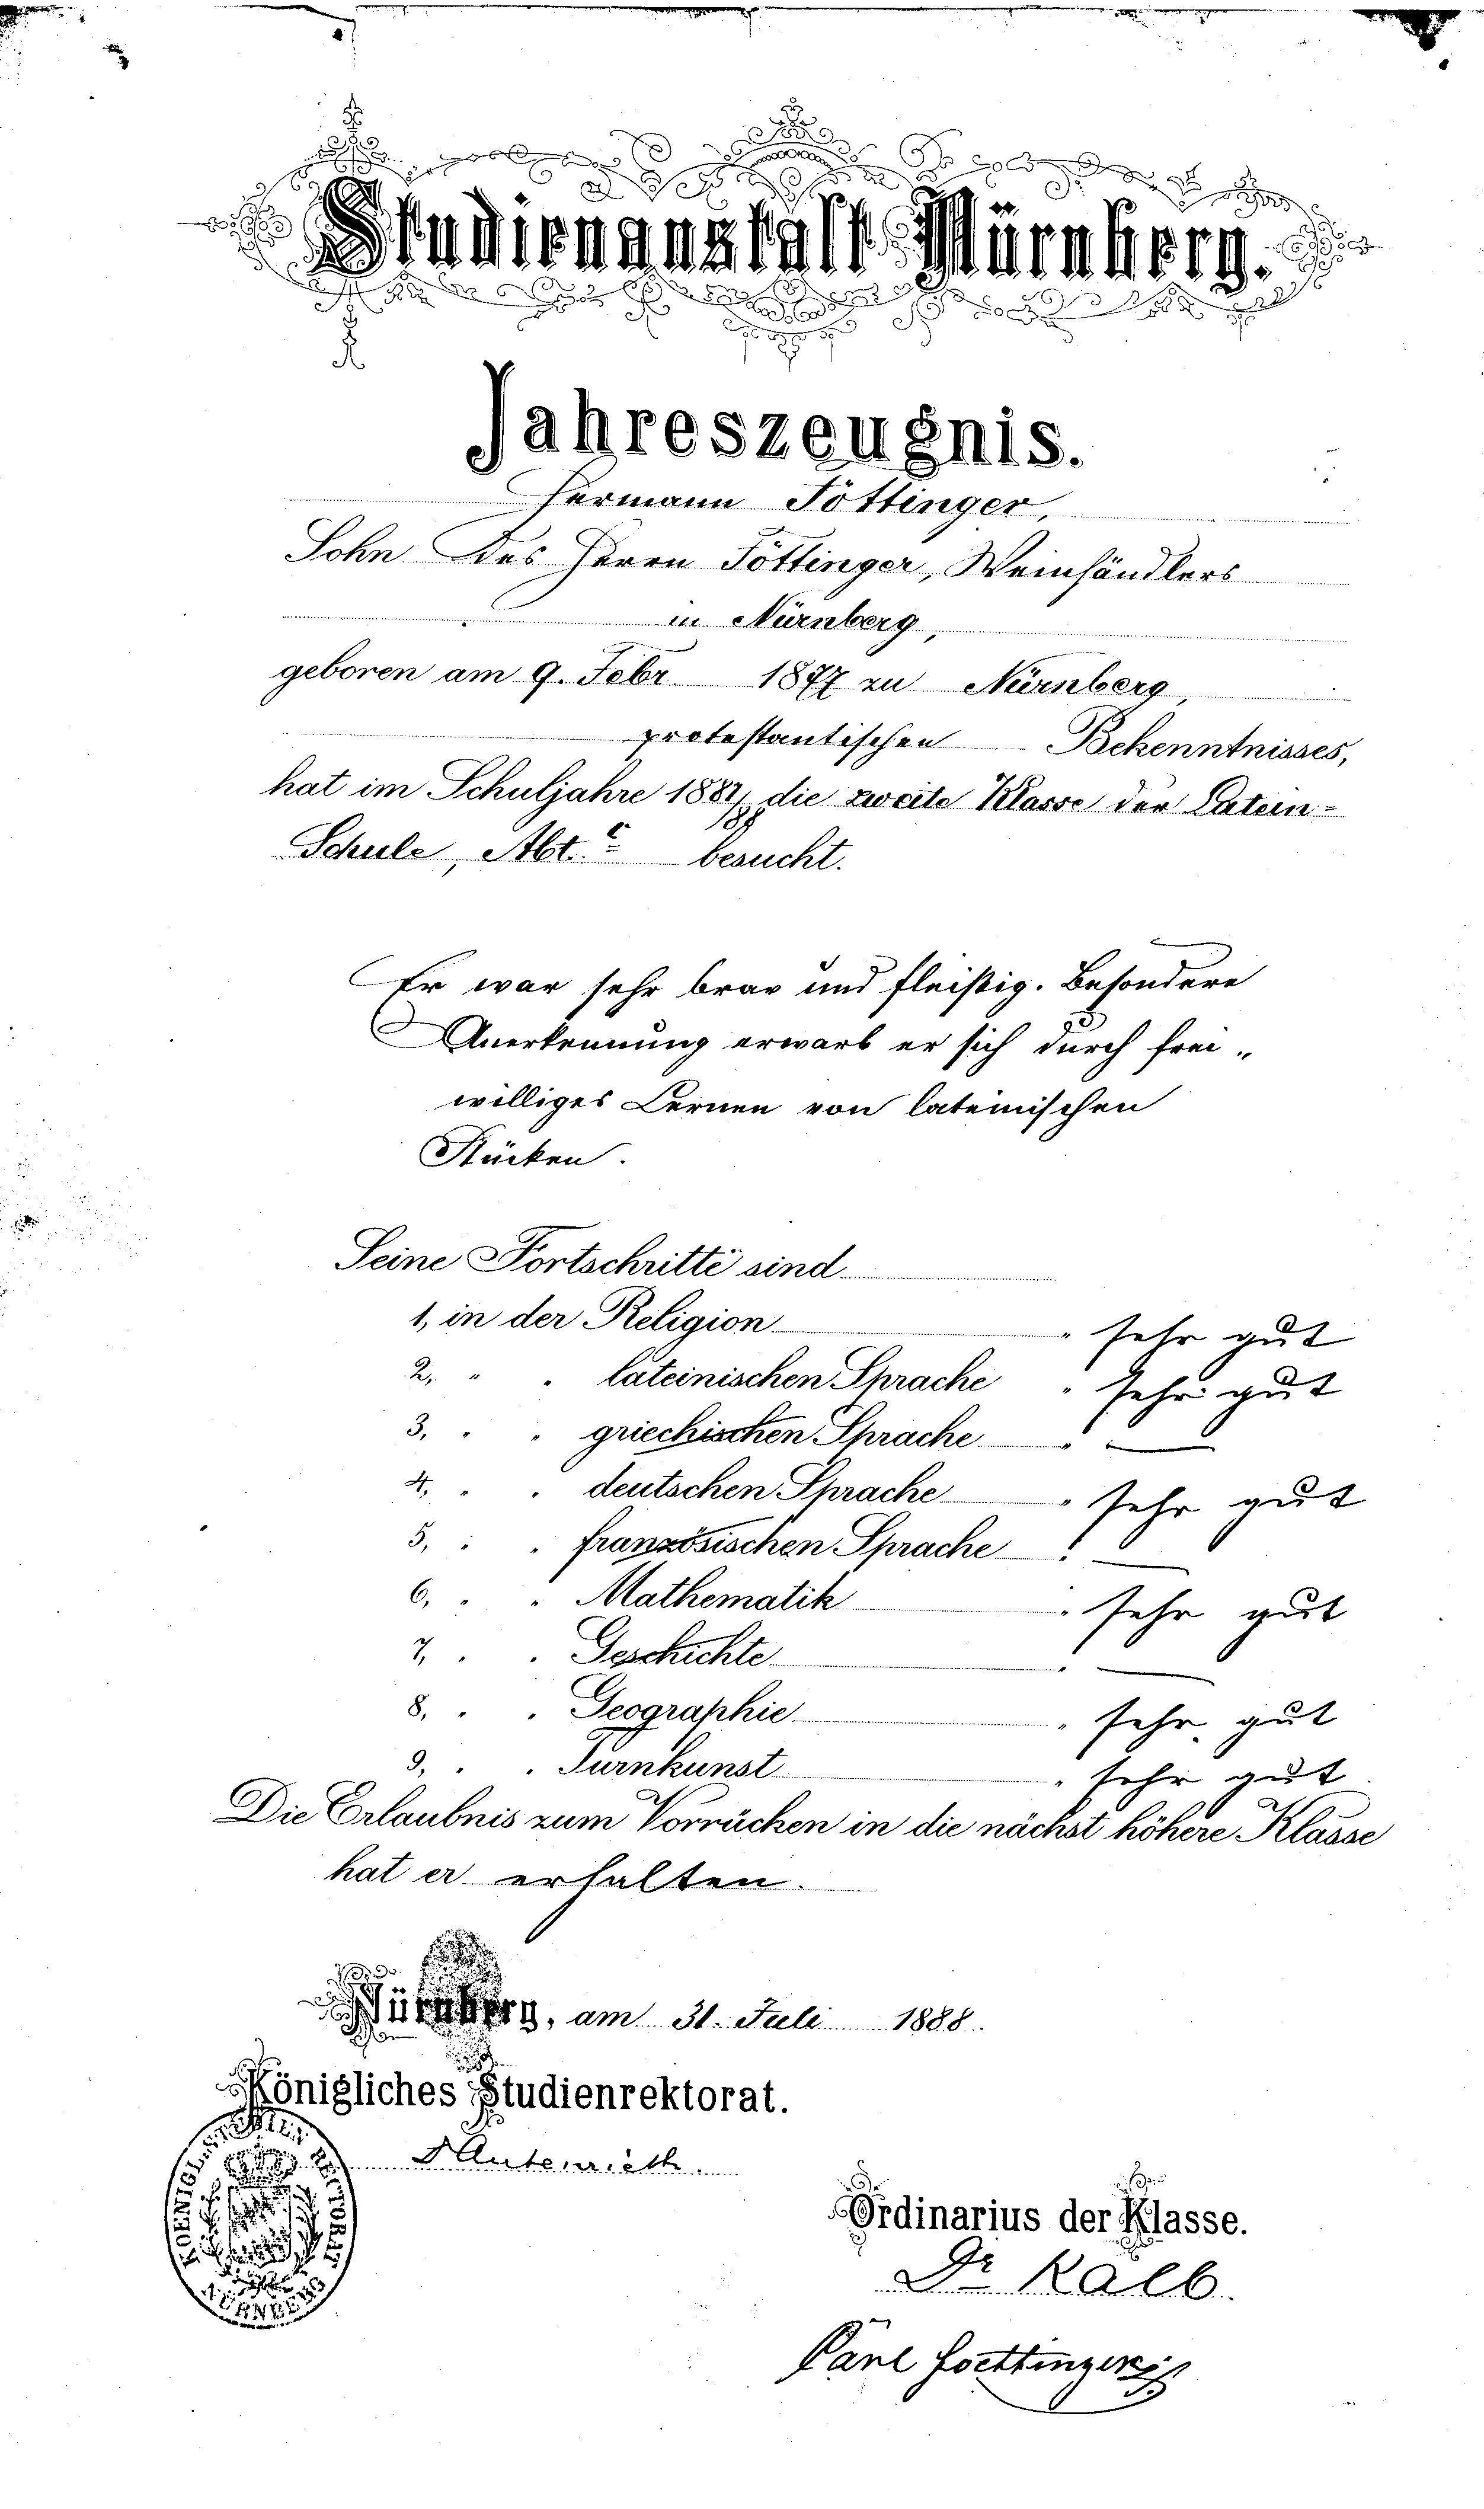 Studienanstalt Nürnberg.
Jahreszeugnis.
Hermann Föttinger,
Sohn des Herrn Föttinger, Weinhändlers
in Nürnberg,
geboren am 9. Febr. 1877 zu Nürnberg,
protestantischen Bekenntnisses,
hat im Schuljahre 1887/88 die zweite Klasse der Latein-
Schule, Abt. c besucht.
Er war sehr brav und fleißig. Besondere
Anerkennung erwarb er sich durch frei-
williges Lernen von lateinischen
Stücken.
Seine Fortschritte sind
1, in der Religion " sehr gut
2, " " lateinischen Sprache " sehr gut
3, " " griechischen Sprache " —
4, " " deutschen Sprache " sehr gut
5, " " französischen Sprache " —
6, " " Mathematik " sehr gut
7, " " Geschichte " —
8, " " Geographie " sehr gut
9, " " Turnkunst " sehr gut
Die Erlaubnis zum Vorrücken in die nächst höhere Klasse
hat er erhalten.
Nürnberg, am 31. Juli 1888.
Königliches Studienrektorat.
Autenrieth.
KOENIGL. STUDIEN RECTORAT
NÜRNBERG
Ordinarius der Klasse.
Dr Kalb.
Carl Foettinger